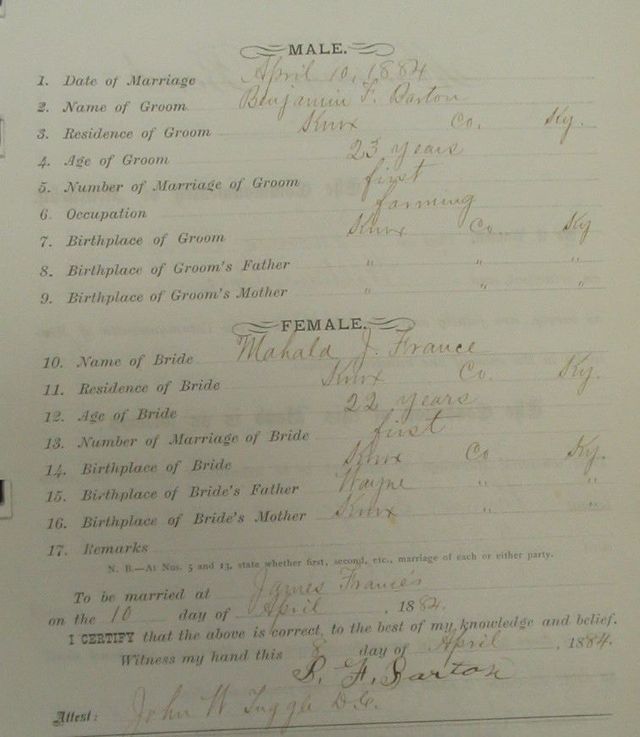 MALE.
1. Date of Marriage April 10, 1884
2. Name of Groom Benjamin F. Barton
3. Residence of Groom Knox Co. Ky.
4. Age of Groom 23 years
5. Number of Marriage of Groom first
6. Occupation farming
7. Birthplace of Groom Knox Co. Ky
8. Birthplace of Groom's Father " " "
9. Birthplace of Groom's Mother " " "
FEMALE.
10. Name of Bride Mahala J. France
11. Residence of Bride Knox Co. Ky.
12. Age of Bride 22 years
13. Number of Marriage of Bride first
14. Birthplace of Bride Knox Co Ky.
15. Birthplace of Bride's Father Wayne " "
16. Birthplace of Bride's Mother Knox " "
17. Remarks
N. B.—At Nos. 5 and 13, state whether first, second, etc., marriage of each or either party.
To be married at James France's
on the 10 day of April, 1884.
I CERTIFY that the above is correct, to the best of my knowledge and belief.
Witness my hand this 8 day of April, 1884.
B. F. Barton
Attest: John W Tuggle D.C.